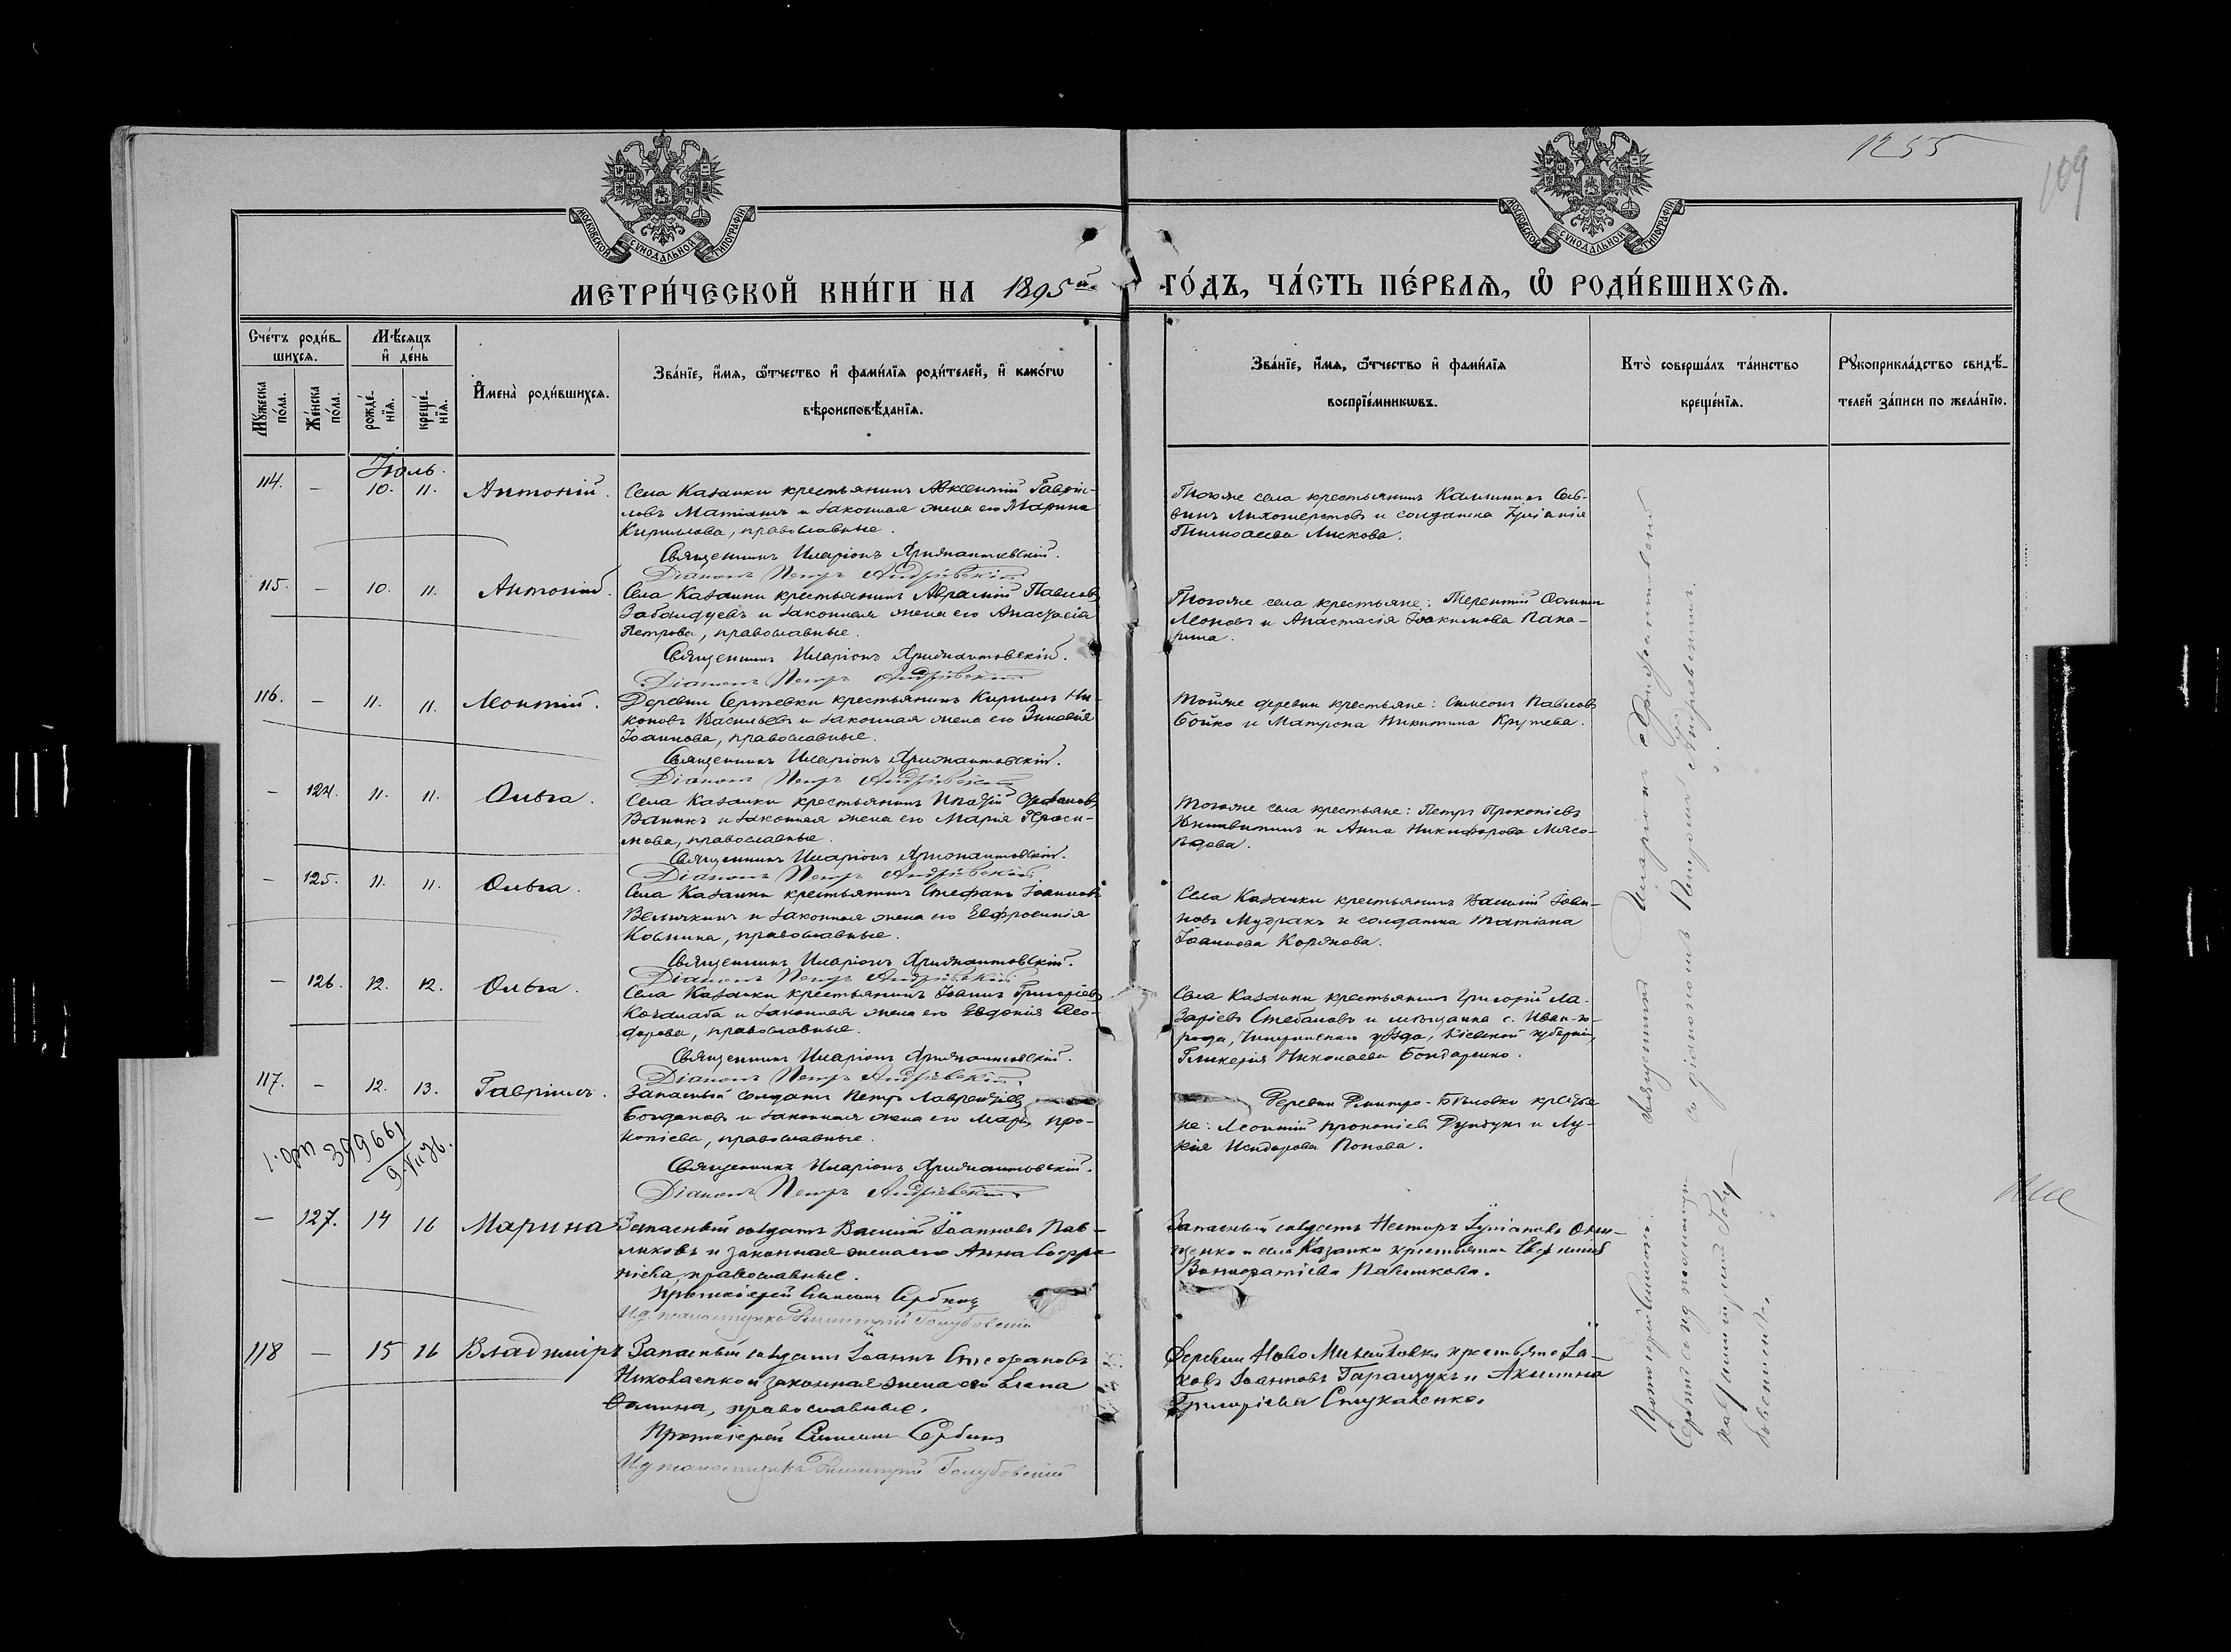 1255
109
МОСКОВСКОЙ СѴНОДАЛЬНОЙ ТИПОГРАФІИ
МОСКОВСКОЙ СѴНОДАЛЬНОЙ ТИПОГРАФІИ
МЕТРИ́ЧЕСКОЙ КНИ́ГИ НА 1895й ГО́ДЪ, ЧА́СТЬ ПЕ́РВАЯ, Ѡ РОДИ́ВШИХСЯ.
Сче́тъ роди́в-
шихся.
Мѣ́сяцъ
и҆ де́нь
Мꙋ́жеска
по́ла.
Же́нска
по́ла.
рожде́-
нїя.
креще́-
нїя.
И҆мена̀ роди́вшихся.
Зва́нїе, и҆́мя, ѻ҆́тчество и҆ фами́лїя роди́телей, и҆ како́гѡ
вѣроисповѣ́данїя.
Зва́нїе, и҆́мя, ѻ҆́тчество и҆ фами́лїя
воспрїе́мникѡвъ.
Кто̀ соверша́лъ та́инство
креще́нїя.
Рꙋкоприкла́дство свидѣ́-
телей за́писи по жела́нїю.
Іюль.
114. — 10. 11. Антоній.
Села Казанки крестьянинъ Авксентій Гавріи-
ловъ и законная жена его Марина
Кирилова, православные.
Священникъ Иларіонъ
Діаконъ Петръ Андріевскій
Тогоже села крестьянинъ Калинникъ Сав-
винъ и солдатка Іуліанія
Тимоѳеева Лискова.
115. — 10. 11. Антоній.
Села Казанки крестьянинъ Аврамій Павловъ
и законная жена его Анастасія
Петрова, православные.
Священникъ Иларіонъ
Діаконъ Петръ Андріевскій
Тогоже села крестьяне: Терентій Ѳоминъ
Леоновъ и Анастасія Іоакимова Пана-
рина.
116. — 11. 11. Леонтій.
Деревни Сергѣевки крестьянинъ Кириллъ Ни-
коновъ Васильевъ и законная жена его Зиновія
Іоаннова, православные.
Священникъ Иларіонъ
Діаконъ Петръ Андріевскій
Тойже деревни крестьяне: Симеонъ Павловъ
Бойко и Матрона Никитина Крутева.
— 124. 11. 11. Ольга.
Села Казанки крестьянинъ Ипатій
и законная жена его Марія Гераси-
мова, православные.
Священникъ Иларіонъ
Діаконъ Петръ Андріевскій
Тогоже села крестьяне: Петръ Прокопіевъ
и Анна Никифорова Мясо-
ѣдова.
— 125. 11. 11. Ольга.
Села Казанки крестьянинъ Стефанъ Іоанновъ
Величкинъ и законная жена его Евфросинія
Козмина, православные.
Священникъ Иларіонъ
Діаконъ Петръ Андріевскій
Села Казанки крестьянинъ Василій Іоан-
новъ Мудракъ и солдатка Татіана
Іоаннова Коржова.
— 126. 12. 12. Ольга.
Села Казанки крестьянинъ Іоаннъ Григоріевъ
Качалаба и законная жена его Евдокія Ѳео-
дорова, православные.
Священникъ Иларіонъ
Діаконъ Петръ Андріевскій
Села Казанки крестьянинъ Григорій Ла-
заріевъ Стебановъ и мѣщанка с. Иван-го-
рода, уѣзда, Кіевской губерніи,
Гликерія Николаева Бондаренко.
117. — 12. 13. Гавріилъ.
Запасный солдатъ Петръ Лаврентіевъ
Богдановъ и законная жена его Марія Про-
копіева, православные.
Священникъ Иларіонъ
Діаконъ Петръ Андріевскій
Деревни Дмитро-Бѣловки крестья-
не: Леонтій Прокопіевъ Дундукъ и Лу-
кія Исидорова Попова.
399661
— 127. 14 16 Марина
Запасный солдатъ Василій Іоанновъ Пав-
ликовъ и законная жена его Анна Софро-
ніева, православные.
Протоіерей Симеонъ Сербинъ
И.д. псаломщика Димитрій Голубовскій
Запасный солдатъ Несторъ Іуліановъ Они-
щенко и села Казанки крестьянка
Павликова.
118 — 15 16 Владиміръ
Запасный солдатъ Іоаннъ Стефановъ
Николаенко и законная жена его Елена
Ѳомина, православные.
Протоіерей Симеонъ Сербинъ
И.д. псаломщика Димитрій Голубовскій
Деревни Ново-Михайловки крестьяне Іа-
ковъ Іоанновъ Гаращукъ и Акилина
Григоріева Стукаленко.
Священникъ Иларіонъ
съ діакономъ Петромъ Андріевскимъ.
Протоіерей Симеонъ
Сербинъ съ и.д. псаломщика
Димитріемъ Голу-
бовскимъ.